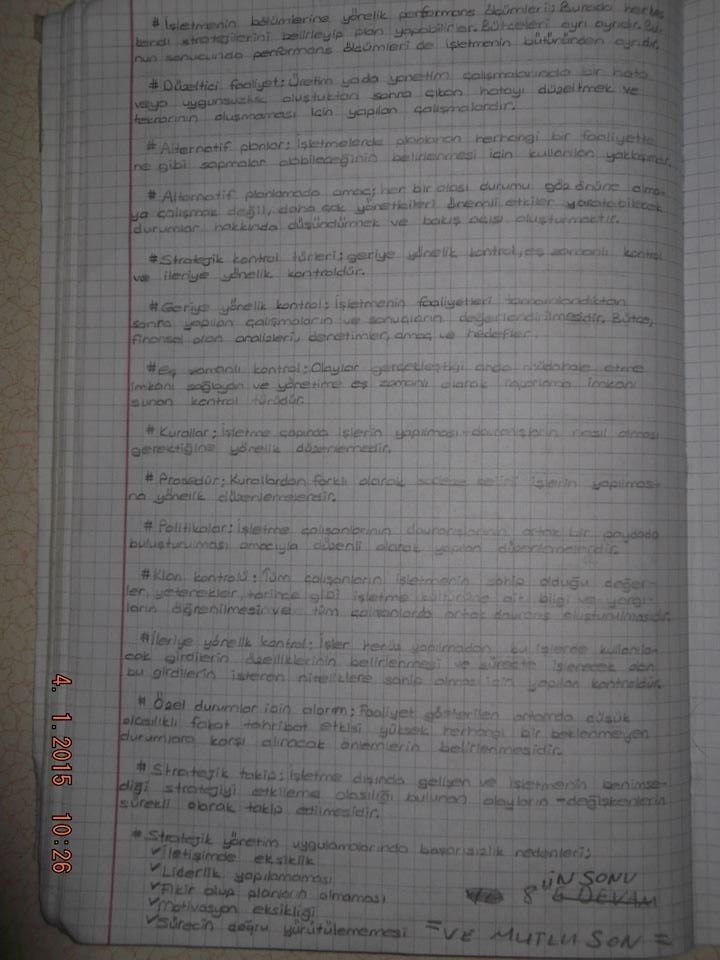 # İşletmenin bölümlerine yönelik performans ölçümleri; Burada herkes
kendi stratejilerini belirleyip plan yapabilirler. Bütçeleri ayrı ayrıdır. Bu-
nun sonucunda performans ölçümleri de işletmenin bütününden ayrıdır.
# Düzeltici faaliyet; Üretim yada yönetim çalışmalarında bir hata
veya uygunsuzluk oluştuktan sonra çıkan hatayı düzeltmek ve
tekrarının oluşmaması için yapılan çalışmalardır.
# Alternatif planlar; İşletmelerde planlanan herhangi bir faaliyette
ne gibi sapmalar olabileceğinin belirlenmesi için kullanılan yaklaşımdır.
# Alternatif planlamada amaç; her bir olası durumu göz önüne alma-
ya çalışmak değil, daha çok yöneticileri önemli etkiler yaratabilecek
durumlar hakkında düşündürmek ve bakış açısı oluşturmaktır.
# Stratejik kontrol türleri; geriye yönelik kontrol, eş zamanlı kontrol
ve ileriye yönelik kontroldür.
# Geriye yönelik kontrol; İşletmenin faaliyetleri tamamlandıktan
sonra yapılan çalışmaların ve sonuçların değerlendirilmesidir. Bütçe,
finansal olan analizleri, denetimler, amaç ve hedefler.
# eş zamanlı kontrol; Olaylar gerçekleştiği anda müdahale etme
imkanı sağlayan ve yönetime eş zamanlı olarak raporlama imkanı
sunan kontrol türüdür.
# Kurallar; İşletme çapında işlerin yapılması-davranışların nasıl olması
gerektiğine yönelik düzenlemedir.
# Prosedür; Kurallardan farklı olarak sadece belirli işlerin yapılması-
na yönelik düzenlemelerdir.
# Politikalar; İşletme çalışanlarının davranışlarının ortak bir paydada
buluşturulması amacıyla düzenli olarak yapılan düzenlemelerdir.
# Klan kontrolü; Tüm çalışanların işletmenin sahip olduğu değer-
ler, yetenekler, tarihçe gibi işletme kültürüne ait bilgi ve yargı-
ların öğrenilmesi ve tüm çalışanlarda ortak davranış oluşturulmasıdır.
# İleriye yönelik kontrol; İşler henüz yapılmadan, bu işlerde kullanıla-
cak girdilerin özelliklerinin belirlenmesi ve süreçte işlenecek olan
bu girdilerin istenen niteliklere sahip olması için yapılan kontroldür.
# Özel durumlar için alarm; Faaliyet gösterilen ortamda düşük
olasılıklı fakat tahribat etkisi yüksek herhangi bir beklenmeyen
durumlara karşı alınacak önlemlerin belirlenmesidir.
# Stratejik takip; İşletme dışında gelişen ve işletmenin benimse-
diği stratejiyi etkileme olasılığı bulunan olayların-değişkenlerin
sürekli olarak takip edilmesidir.
# Stratejik yönetim uygulamalarında başarısızlık nedenleri;
✓ İletişimde eksiklik
✓ Liderlik yapılamaması
✓ Fikir olup planların olmaması
✓ Motivasyon eksikliği
✓ Sürecin doğru yürütülememesi
8'İN SONU
DEVAM
= VE MUTLU SON =
4. 1. 2015 10:26